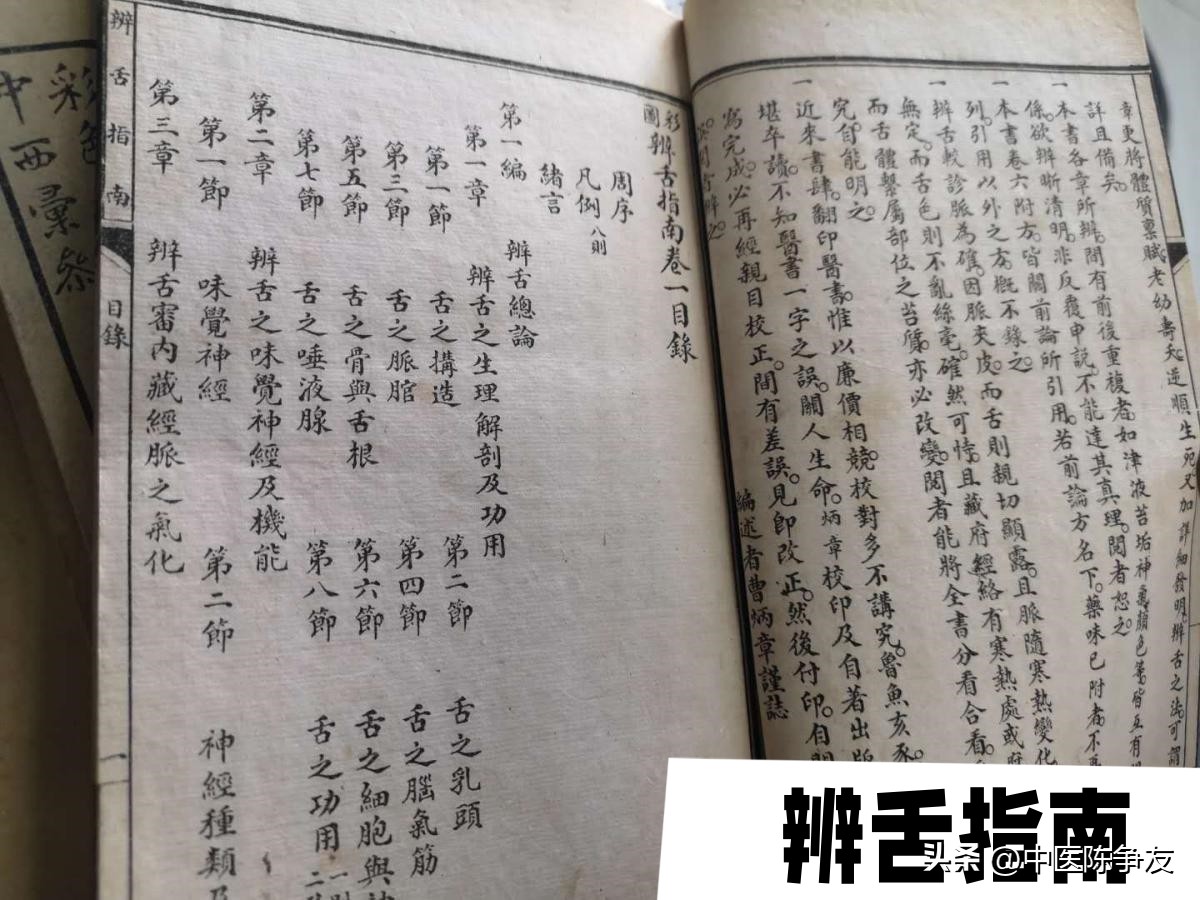 章更將體質禀賦老幼壽夭逆順生死又加詳細發明辨舌之法可謂
詳且備矣。
一本書各章所辨間有前後重複者如津液苔垢神氣顏色等皆互有
係。欲辨晰清明。非反覆申說。不能達其真理。閱者恕之。
一本書卷六附方。皆關前論所引用。若前論方名下。藥味已附者。不再
列。引用以外之方。概不錄之。
一辨舌較診脈為確。因脈夾皮。而舌則親切顯露。且脈隨寒熱變化
無定。而舌色則不亂絲毫。確然可恃。且藏府經絡有寒熱處或
而舌體繫屬部位之苔質。亦必改變。閱者能將全書分看合看。
究。自能明之。
一近來書肆。翻印醫書。惟以廉價相競。校對多不講究。魯魚亥豕。
堪卒讀。不知醫書一字之誤。關人生命。炳章校印及自著出版
寫完成。必再經親目校正。間有差誤。見即改正。然後付印。自問
編述者曹炳章謹誌
彩圖辨舌指南卷一目錄
周序
凡例八則
緒言
第一編 辨舌總論
第一章 辨舌之生理解剖及功用
第一節 舌之搆造 第二節 舌之乳頭
第三節 舌之脈管 第四節 舌之腦氣筋
第五節 舌之骨與舌根 第六節 舌之細胞與
第七節 舌之唾液腺 第八節 舌之功用
第二章 辨舌之味覺神經及機能
第一節 味覺神經 第二節 神經種類及
第三章 辨舌審內藏經脈之氣化
辨舌指南 目錄 一
彩色
中西彙參
辨舌指南
头条 @中医陈争友